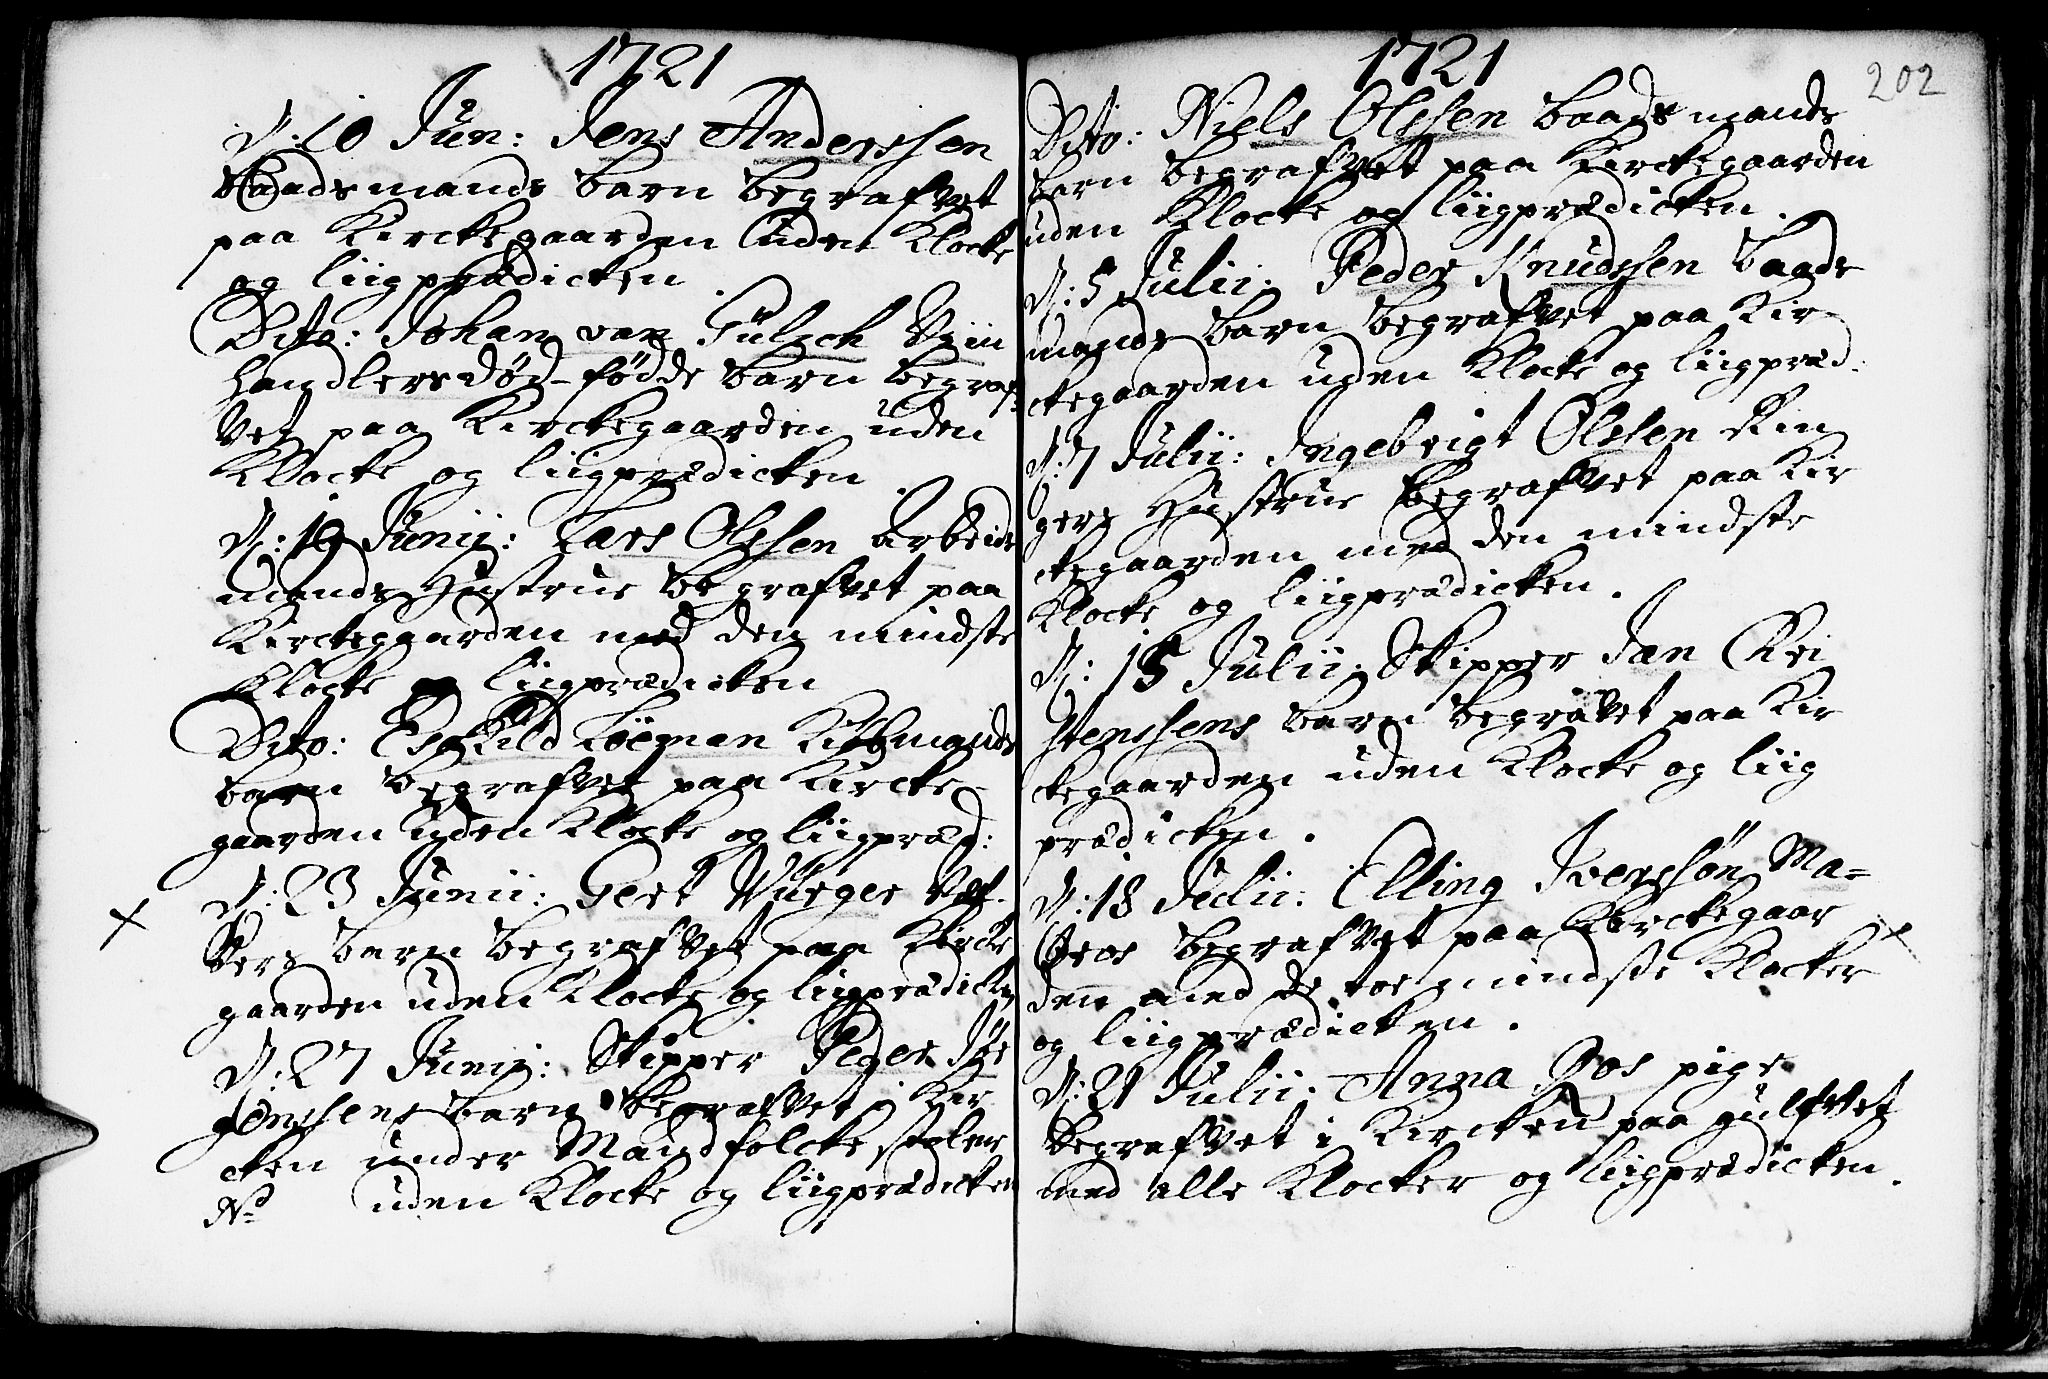 1721
d: 10 Jun: Jens Anderssen
Baadsmands barn begrafvet
paa Kirckegaarden uden Klocke
og liigprædicken.
Dito: Johan van Gülich Viin
handlers død-fødde barn begraf-
vet paa Kirckegaarden uden
Klocke og liigprædicken.
d: 19 Junii: Lars Olssen arbeids
mands Hustrue begrafvet paa
Kirckegaarden med den mindste
Klocke og liigprædicken
Dito: Eschild Kiöbmands
barn begrafvet paa Kircke-
gaarden uden Klocke og liigpræd:
d: 23 Junii: Gert Würger
barn begrafvet paa Kircke
gaarden uden Klocke og liigprædicken
d: 27 Junii: Skipper Peder Jör
genssens barn begrafvet i Kir
cken under Mandfolcke stoler
No uden Klocke og liigprædicken
1721
202
Dito: Niels Olssen baadsmands
barn begrafvet paa Kirckegaarden
uden Klocke og liigprædicken.
d: 5 Julii: Peder Knudssen baads
mands barn begrafvet paa Kir
ckegaarden uden Klocke og liigpræd:
d: 7 Julii: Ingebrigt Olssen Rin
gers Hustrue begrafvet paa Kir
ckegaarden med den mindste
Klocke og liigprædicken.
d: 15 Julii: Skipper Jan Chri
stenssens barn begravet paa Kir
ckegaarden uden Klocke og liig
prædicken.
d: 18 Julii: Elling Iverssøn Ma-
begrafvet paa Kirckegaar
den med de toe mindste Klocker
og liigprædicken.
d: 21 Julii: Anna pige
begrafvet i Kircken paa gulfvet
med alle Klocker og liigprædicken.